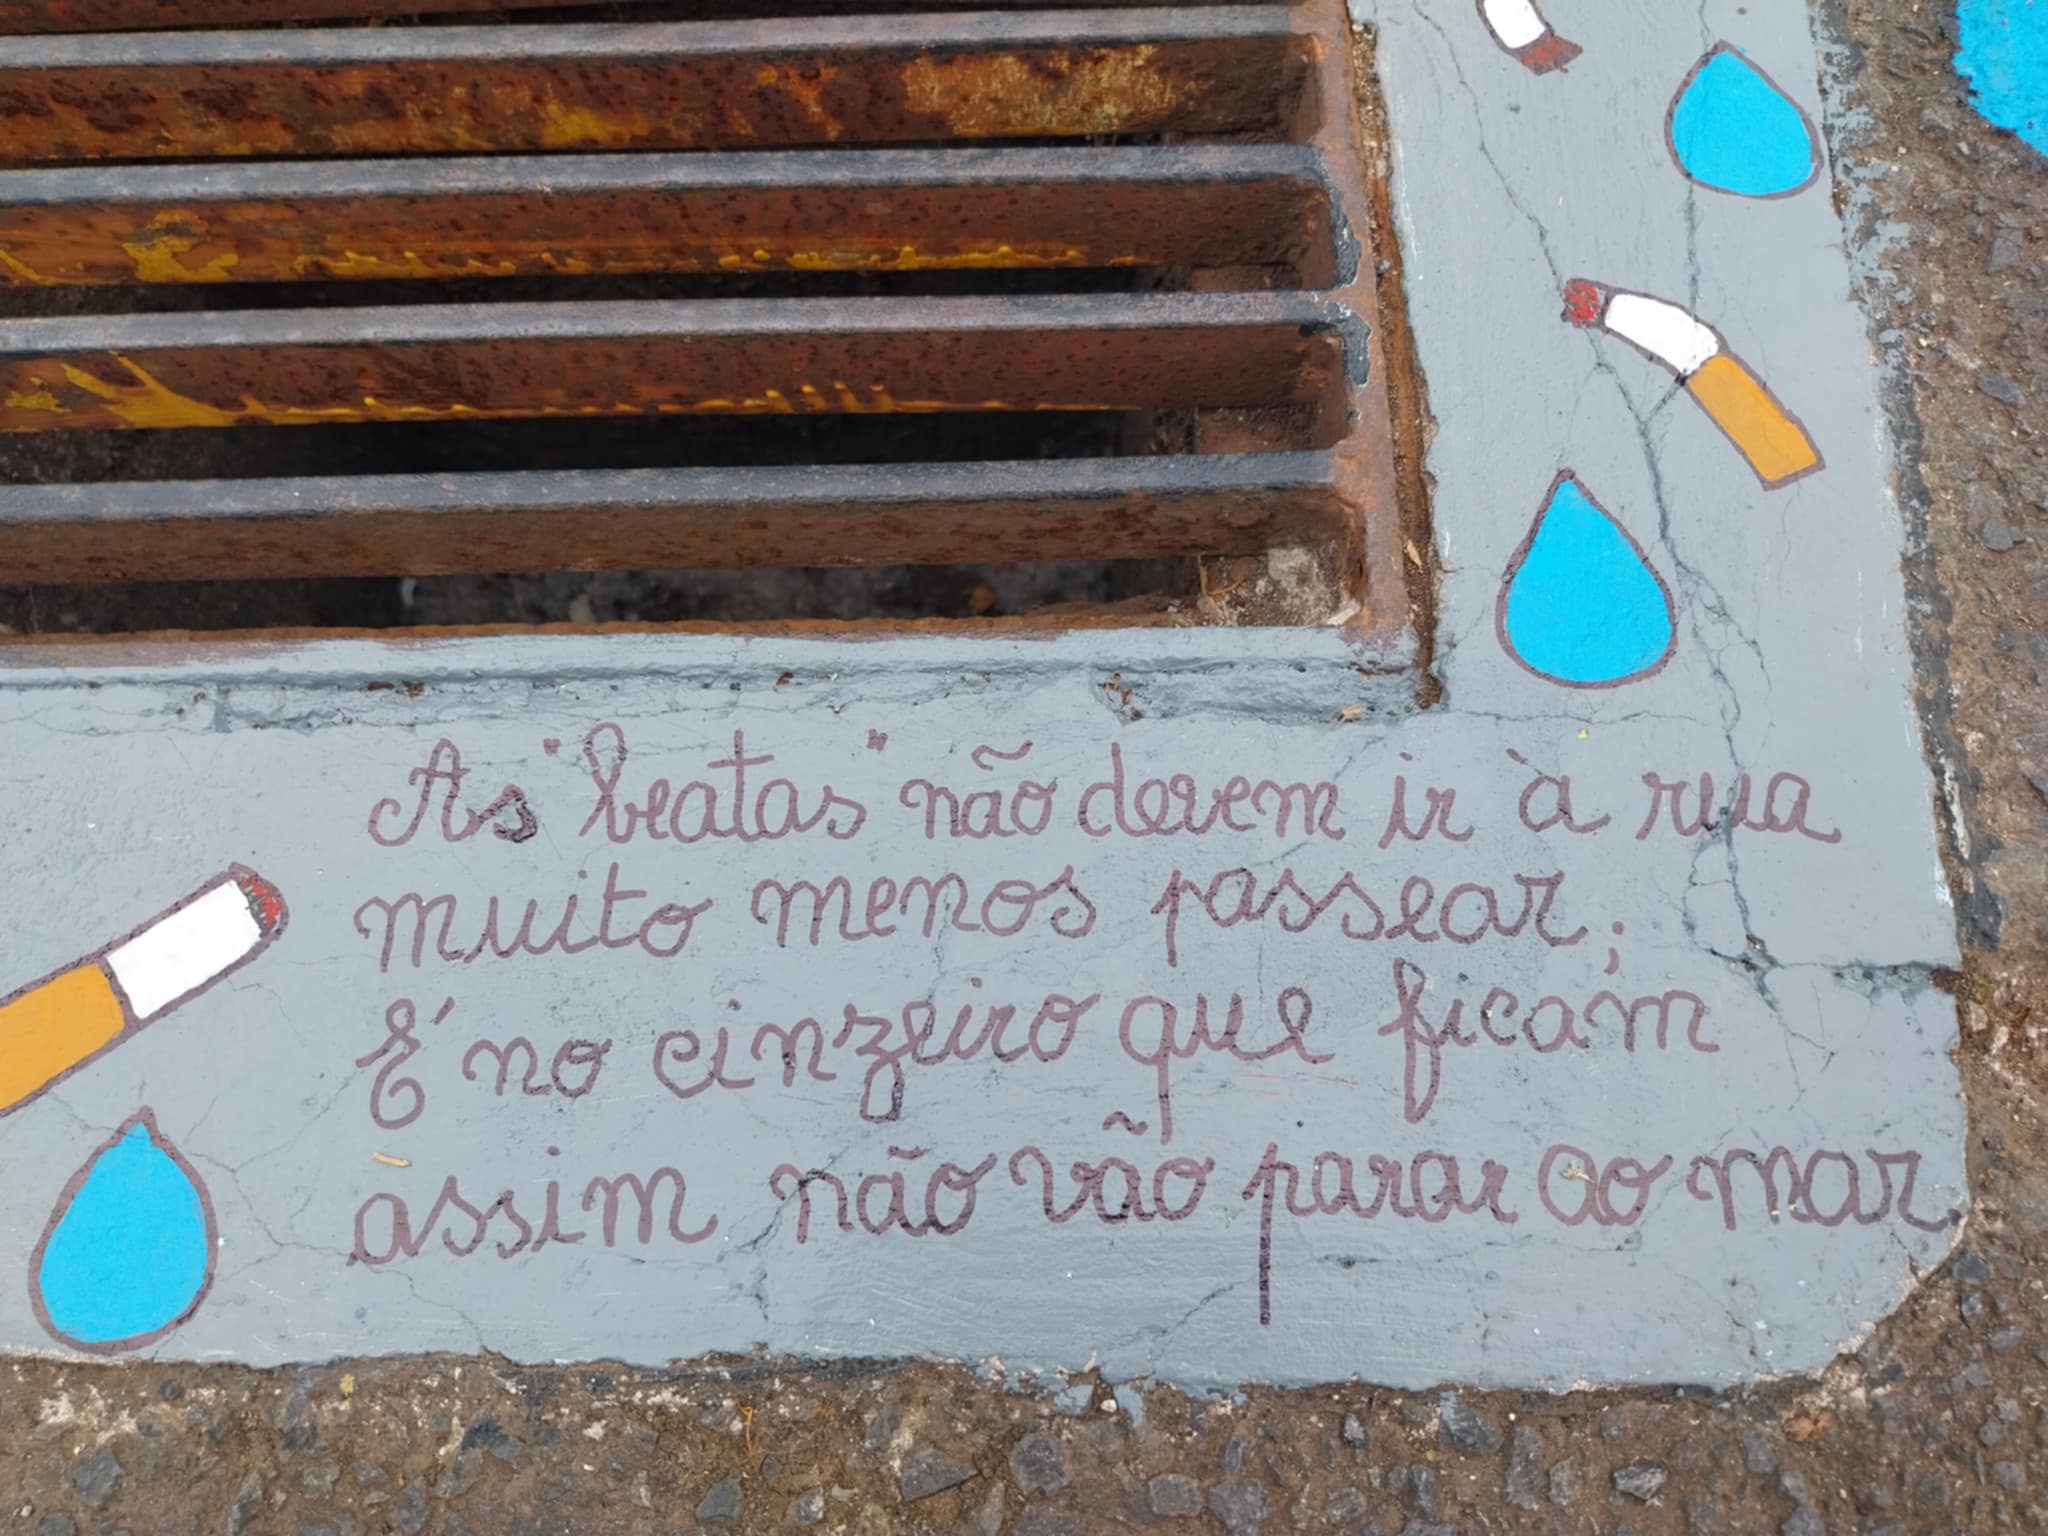 As "beatas" não devem ir à rua
muito menos passear;
É no cinzeiro que ficam
assim não vão parar ao mar.